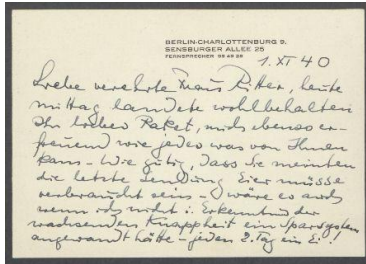 BERLIN-CHARLOTTENBURG 9,
SENSBURGER ALLEE 25
FERNSPRECHER 99 49 28
1. XI 40
Liebe verehrte Frau Ritter, heute
mittag landete wohlbehalten
Ihr liebes Paket, mich ebenso er-
freuend wie jedes was von Ihnen
kam – Wie gütig, dass Sie meinten
die letzte Sendung Eier müsse
verbraucht sein – wäre es auch
wenn ich nicht i. Erkenntnis der
wachsenden Knappheit ein Sparsystem
angewandt hätte – jeden 2. Tag ein Ei!